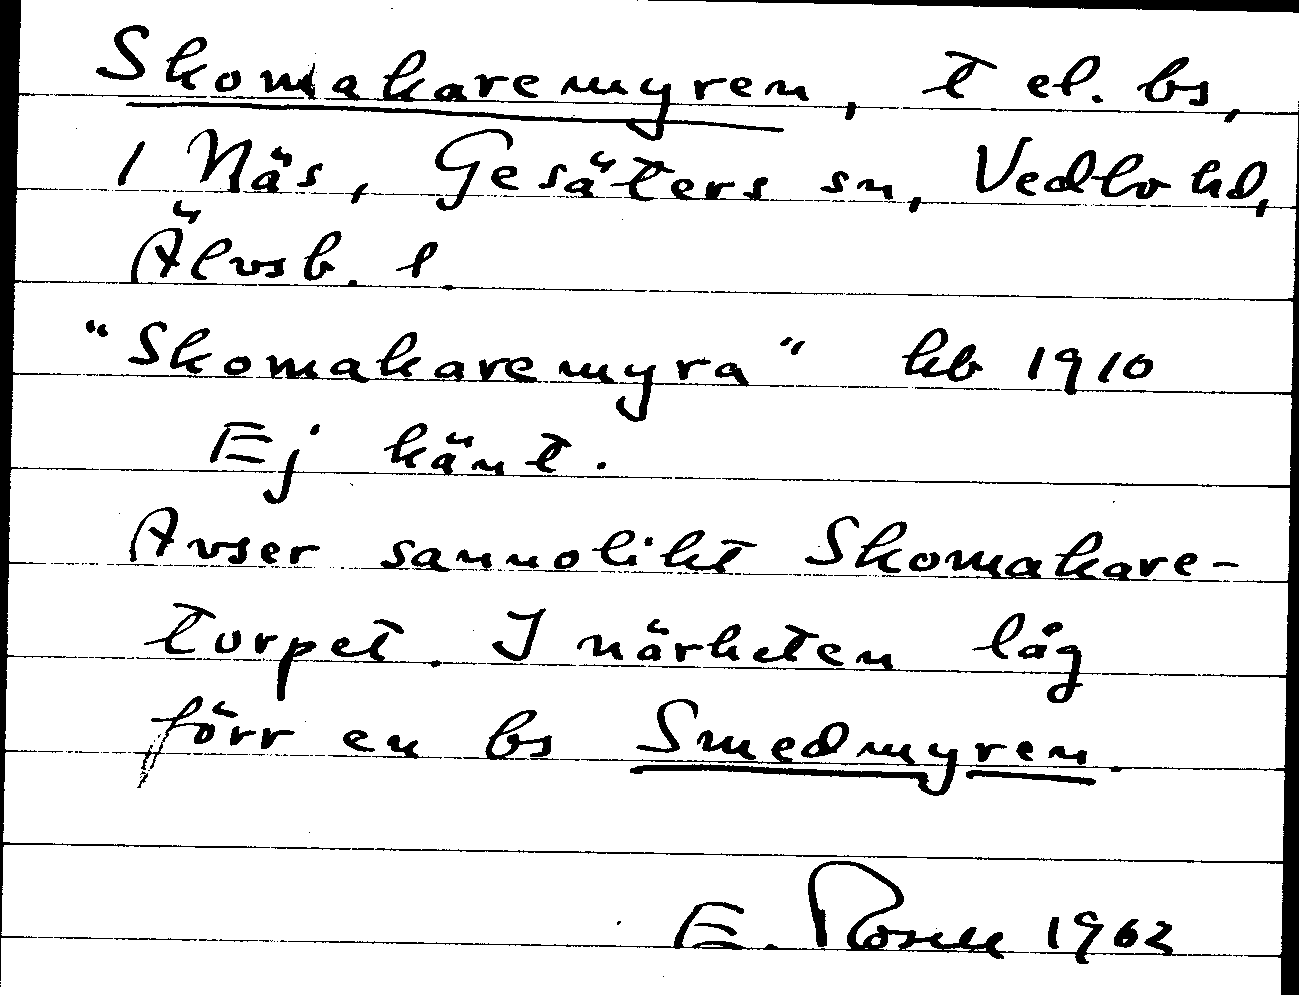 Skomakaremyren, t el. bs,
1 Näs, Gesäters sn, Vedbo hd,
Älvsb. l.
"Skomakaremyra" kb 1910
Ej känt.
Avser sannolikt Skomakare-
torpet. I närheten låg
förr en bs Smedmyren.
E. Rosell 1962